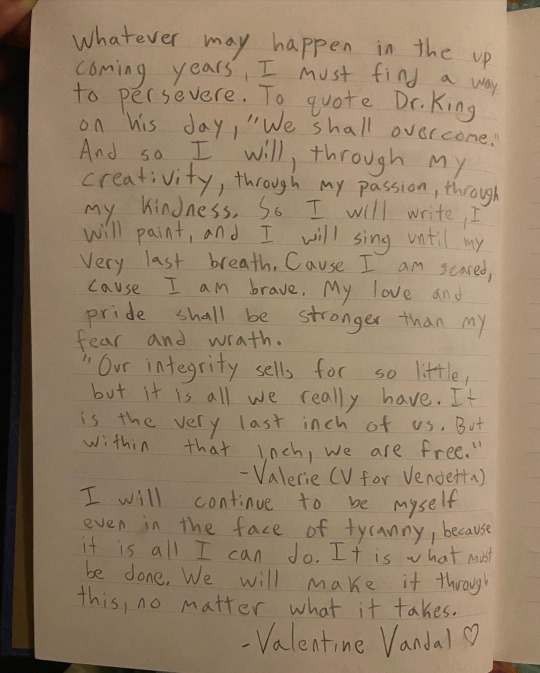 Whatever may happen in the up
coming years, I must find a way
to persevere. To quote Dr. King
on his day, "We shall overcome."
And so I will, through my
creativity, through my passion, through
my kindness. So I will write, I
will paint, and I will sing until my
very last breath. Cause I am scared,
cause I am brave. My love and
pride shall be stronger than my
fear and wrath.
"Our integrity sells for so little,
but it is all we really have. It
is the very last inch of us. But
within that inch, we are free."
-Valerie (V for Vendetta)
I will continue to be myself
even in the face of tyranny, because
it is all I can do. It is what must
be done. We will make it through
this, no matter what it takes.
-Valentine Vandal ♡